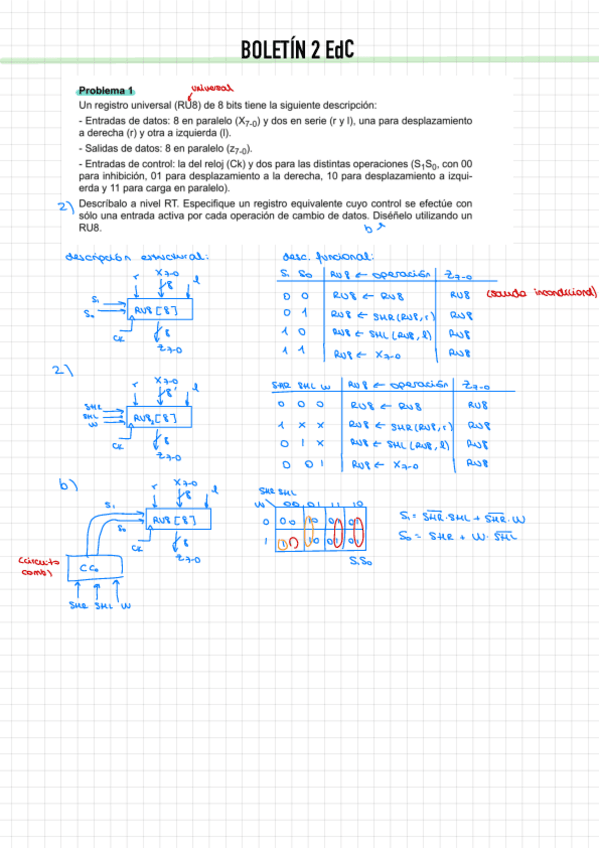 BOLETÍN 2 EdC
Problema 1
universal
Un registro universal (RU8) de 8 bits tiene la siguiente descripción:
- Entradas de datos: 8 en paralelo (X7-0) y dos en serie (r y l), una para desplazamiento
a derecha (r) y otra a izquierda (l).
- Salidas de datos: 8 en paralelo (z7-0).
- Entradas de control: la del reloj (Ck) y dos para las distintas operaciones (S1S0, con 00
para inhibición, 01 para desplazamiento a la derecha, 10 para desplazamiento a izqui-
erda y 11 para carga en paralelo).
2) Descríbalo a nivel RT. Especifique un registro equivalente cuyo control se efectúe con
sólo una entrada activa por cada operación de cambio de datos. Diséñelo utilizando un
RU8.
b
descripción estructural:
r X7-0 l
8
S1
S0
RU8 [8]
CK
8
Z7-0
desc. funcional:
S1 S0 RU8 ← operación Z7-0
0 0 RU8 ← RU8 RU8 (salida incondicional)
0 1 RU8 ← SHR(RU8, r) RU8
1 0 RU8 ← SHL(RU8, l) RU8
1 1 RU8 ← X7-0 RU8
2)
r X7-0 l
8
SHR
SHL
W
RU82[8]
CK
8
Z7-0
SHR SHL W RU8 ← operación Z7-0
0 0 0 RU8 ← RU8 RU8
1 X X RU8 ← SHR(RU8, r) RU8
0 1 X RU8 ← SHL(RU8, l) RU8
0 0 1 RU8 ← X7-0 RU8
b)
r X7-0 l
8
S1
S0
RU8 [8]
CK
8
Z7-0
(circuito
comb)
CC
SHR SHL W
SHR SHL
W 00 01 11 10
0 00 10 01 01
1 11 10 01 01
S1S0
S1 = S̅H̅R̅·SHL + S̅H̅R̅·W
S0 = SHR + W·S̅H̅L̅